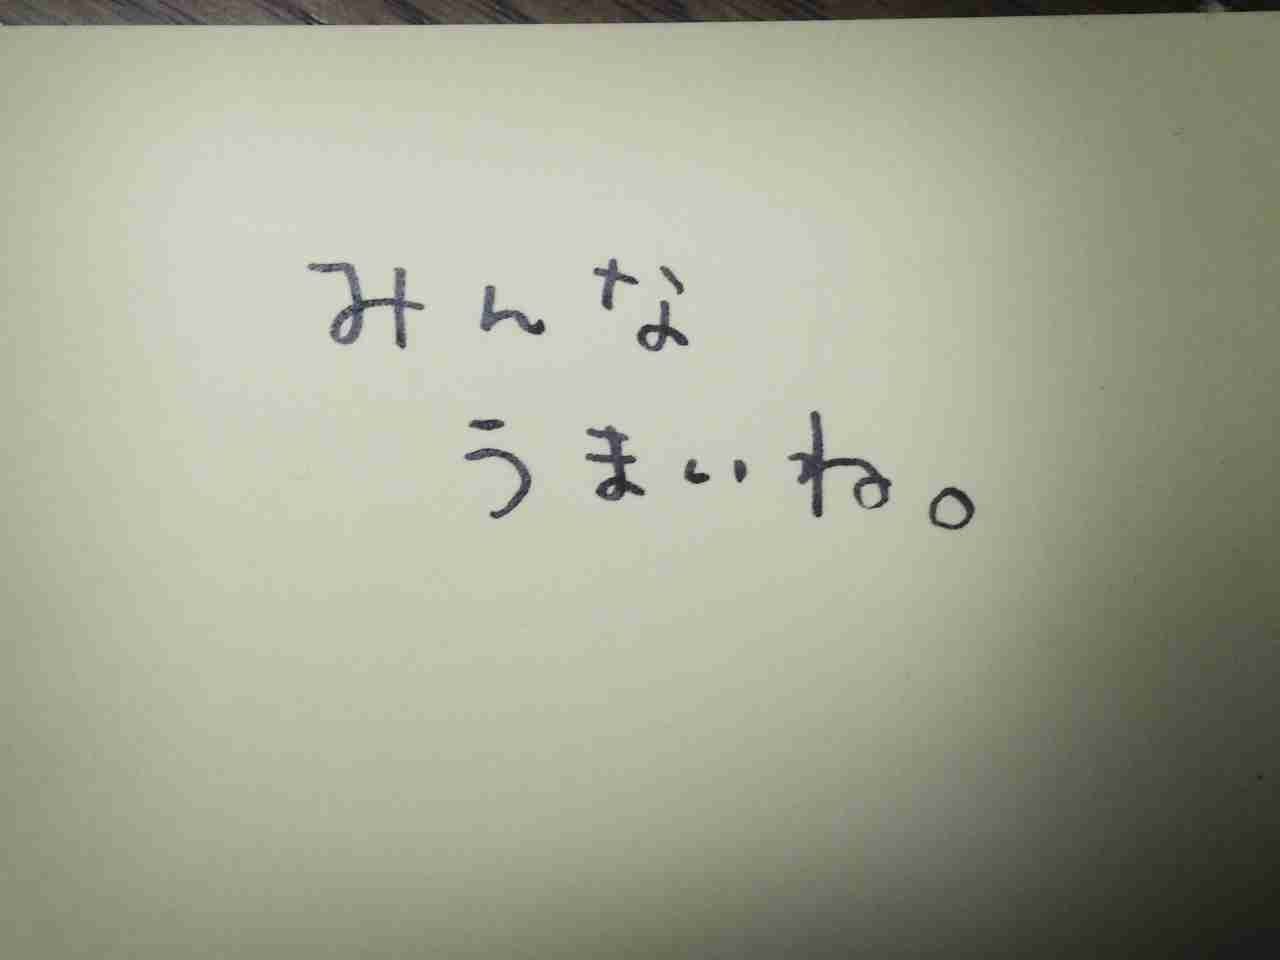 みんな
うまいね。